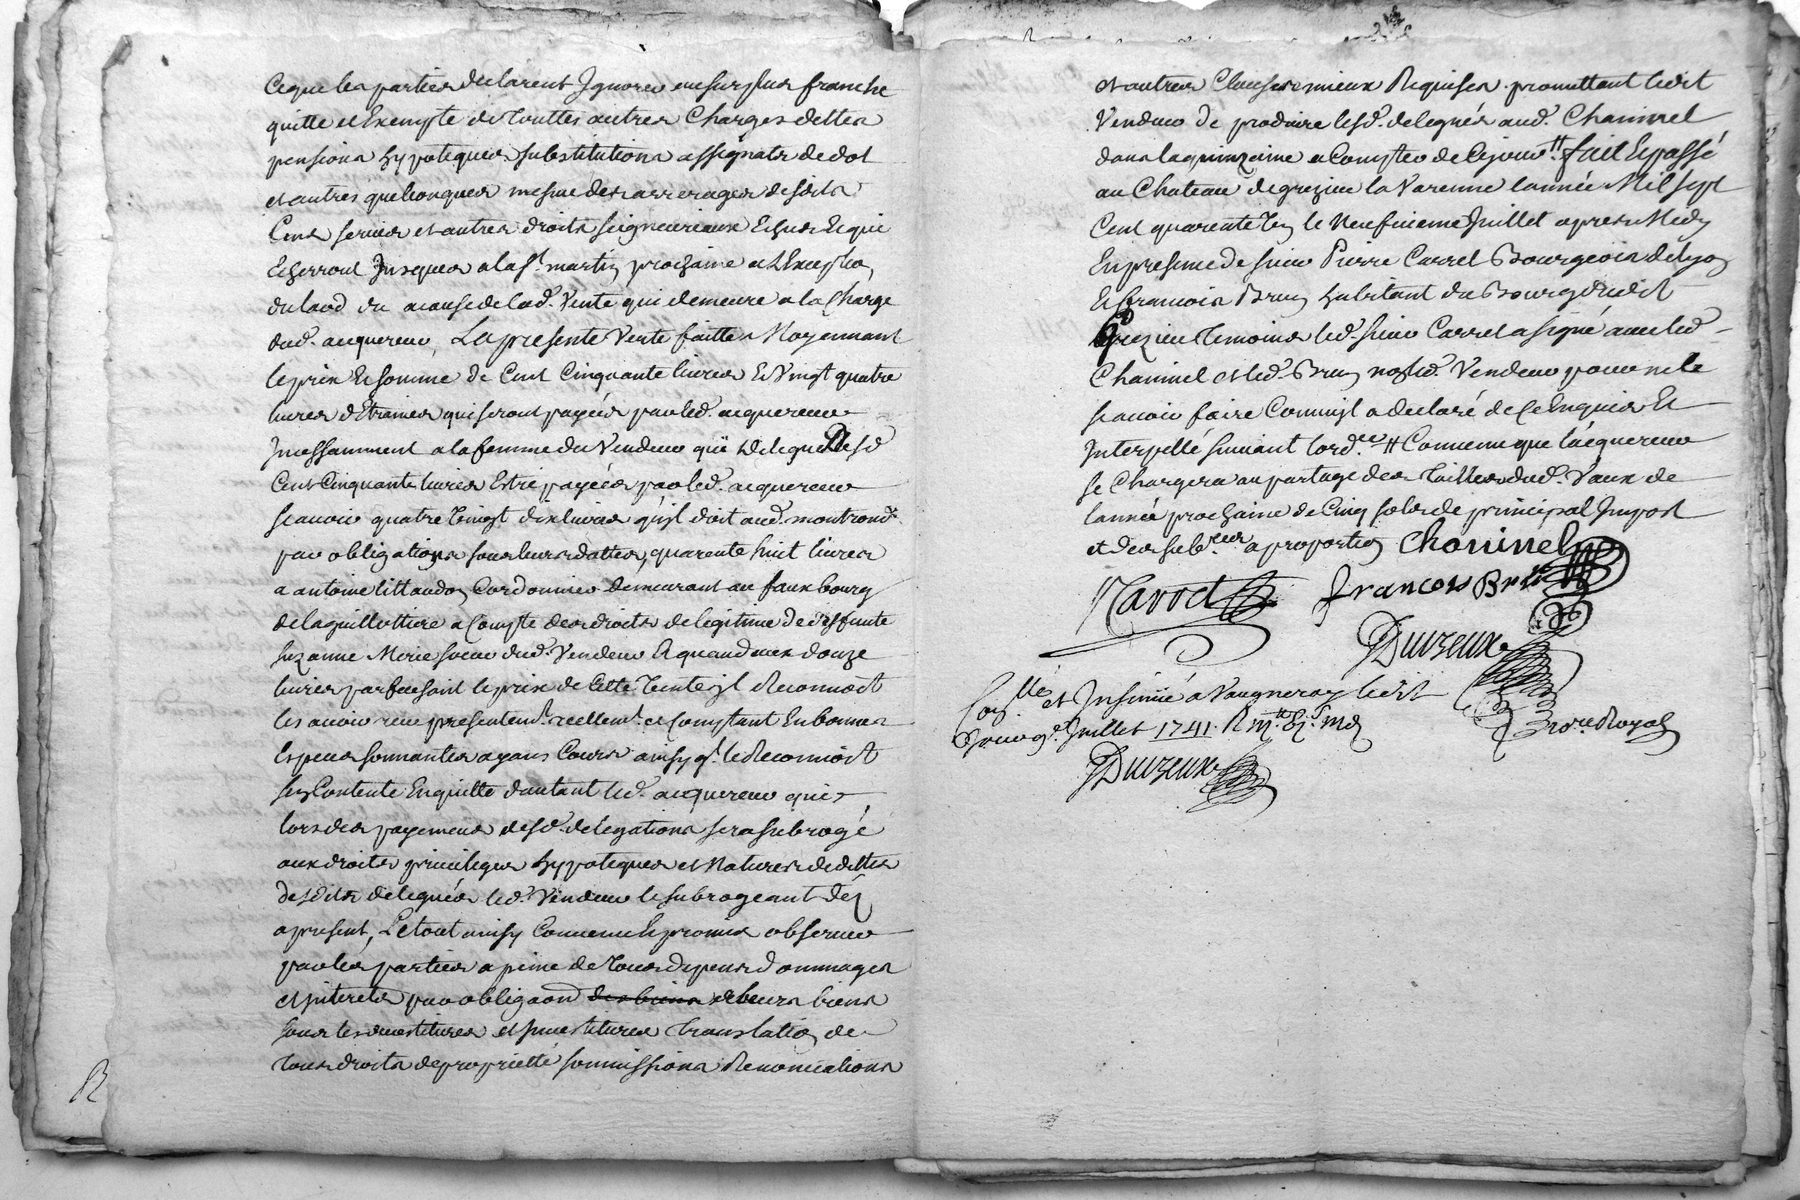 Ceque les parties declarent Ignorer ensurplus franche
quitte et Exempte de Touttes autres Charges dettes
pensions hypoteques substitutions assignats de dot
et autres quelconques mesme des arrerages desdits
Cens servies et autres droits seigneuriaux Echus Et qui
Echerront Jusques a la st. martin prochaine a L'Exception
du laod du acause de lad. Vente qui demeure a la Charge
dud. acquereur, La presente Vente faitte Moyennant
le prix Et somme de Cent Cinquante livres Et Vingt quatre
livres d'Etraines qui seront payées par led. acquereur
Incessamment a la femme du Vendeur qui delegue lesd
Cent Cinquante livres Estre payées par led. acquereur
scavoir quatre Vingt dix livres qu'il doit aud. montrond
par obligations sous leurs dattes, quarente huit livres
a antoine littaudon Cordonnier demeurant au fauxbourg
de la guillottiere a Compte des droits de legitime de deffunte
suzanne Merie soeur dud. Vendeur Et quand aux douze
livres parfaisant le prix de Cette Vente il Reconnoit
les avoir reçu presentemt. reellemt. et Comptant En bonnes
Especes sonnantes ayans Cours ainsy ql. le Reconnoit
sen Contente En quitte d'autant led. acquereur qui
lors des payemens desd. delegations sera subrogé
aux droits privileges hypoteques et Natures de dettes
desdits delegués led. Vendeur le subrogeant dés
a present, Le tout ainsy Convenu Et promis observer
par les parties a peine de tous depens dommages
et interets par obligaon des biens de leurs biens
sous les devestitures et investitures translation de
tous droits de proprietté soumissions Renonciations
et autres Clauses mieux Requises promettant ledit
Vendeur de produire lesd. delegués aud. Chaninel
dans la quinzaine a Compter de Cejourd'huy fait Et passé
au Chateau de grezieu la Varenne l'année Mil sept
Cent quarente Un le Neufvieme Juillet apres Midy
En presence de sieur Pierre Carret Bourgeois de Lyon
Et francois Brun habitant du Bourg dudit
Grezieu Temoins led. sieur Carret a signé avec led
Chaninel et led. Brun non led. Vendeur pour ne le
scavoir faire Comm'il a declaré de Ce Enquis Et
Interpellé suivant l'ordce. # Convenu que l'acquereur
se Chargera au partage des Tailles dud. Vaux de
l'année prochaine de Cinq sols de principal Impost
et des accres. a proportion Chaninel
Carret francois Brun
Duvzeux
Conlle. et Insinué a Vaugneray ledit
Jour 9e. Juillet 1741.
Nore. Royal
Duvzeux